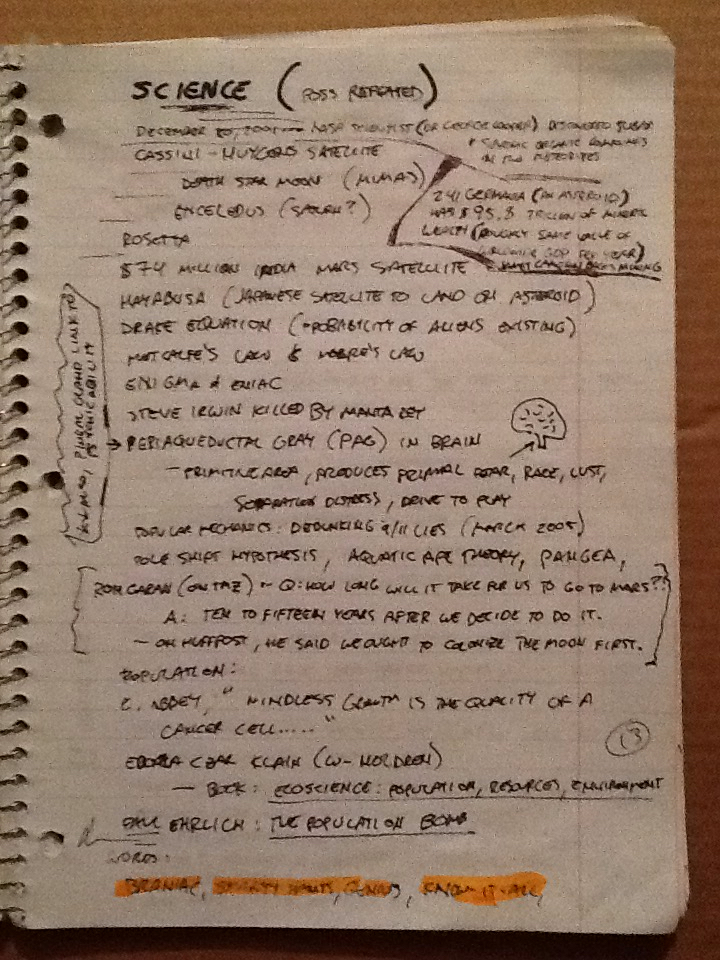 SCIENCE (POSS REPEATED)
DECEMBER 20, 2001 — NASA SCIENTIST (DR GEORGE COOPER) DISCOVERED SUGAR
& SUGARIC ORGANIC COMPOUNDS
IN TWO METEORITES
CASSINI - HUYGENS SATELLITE
DEATH STAR MOON (MIMAS)
ENCELEDUS (SATURN?)
241 GERMANIA (AN ASTEROID)
HAS $95.8 TRILLION OF MINERAL
WEALTH (ROUGHLY SAME VALUE OF
WORLDWIDE GDP PER YEAR)
MINING
ROSETTA
$74 MILLION INDIA MARS SATELLITE
HAYABUSA (JAPANESE SATELLITE TO LAND ON ASTEROID)
DRAKE EQUATION (PROBABILITY OF ALIENS EXISTING)
METCALFE'S LAW & MOORE'S LAW
ENIGMA & ENIAC
STEVE IRWIN KILLED BY MANTA RAY
PERIAQUEDUCTAL GRAY (PAG) IN BRAIN
PINEAL GLAND LINK TO
PSYCHIC ABILITY
- PRIMITIVE AREA, PRODUCES PRIMAL FEAR, RAGE, LUST,
SEPARATION DISTRESS, DRIVE TO PLAY
POPULAR MECHANICS: DEBUNKING 9/11 LIES (MARCH 2005)
POLE SHIFT HYPOTHESIS, AQUATIC APE THEORY, PANGEA,
RON GARAN (ON TMZ) ~ Q: HOW LONG WILL IT TAKE FOR US TO GO TO MARS??
A: TEN TO FIFTEEN YEARS AFTER WE DECIDE TO DO IT.
- ON HUFFPOST, HE SAID WE OUGHT TO COLONIZE THE MOON FIRST.
POPULATION:
E. ABBEY, "MINDLESS GROWTH IS THE QUALITY OF A
CANCER CELL....."
EBOLA CZAR KLAIN (W- HOLDREN)
13
- BOOK: ECOSCIENCE: POPULATION, RESOURCES, ENVIRONMENT
PAUL EHRLICH: THE POPULATION BOMB
WORDS:
BRANIAC, SMARTY PANTS, GENIUS, KNOW-IT-ALL,